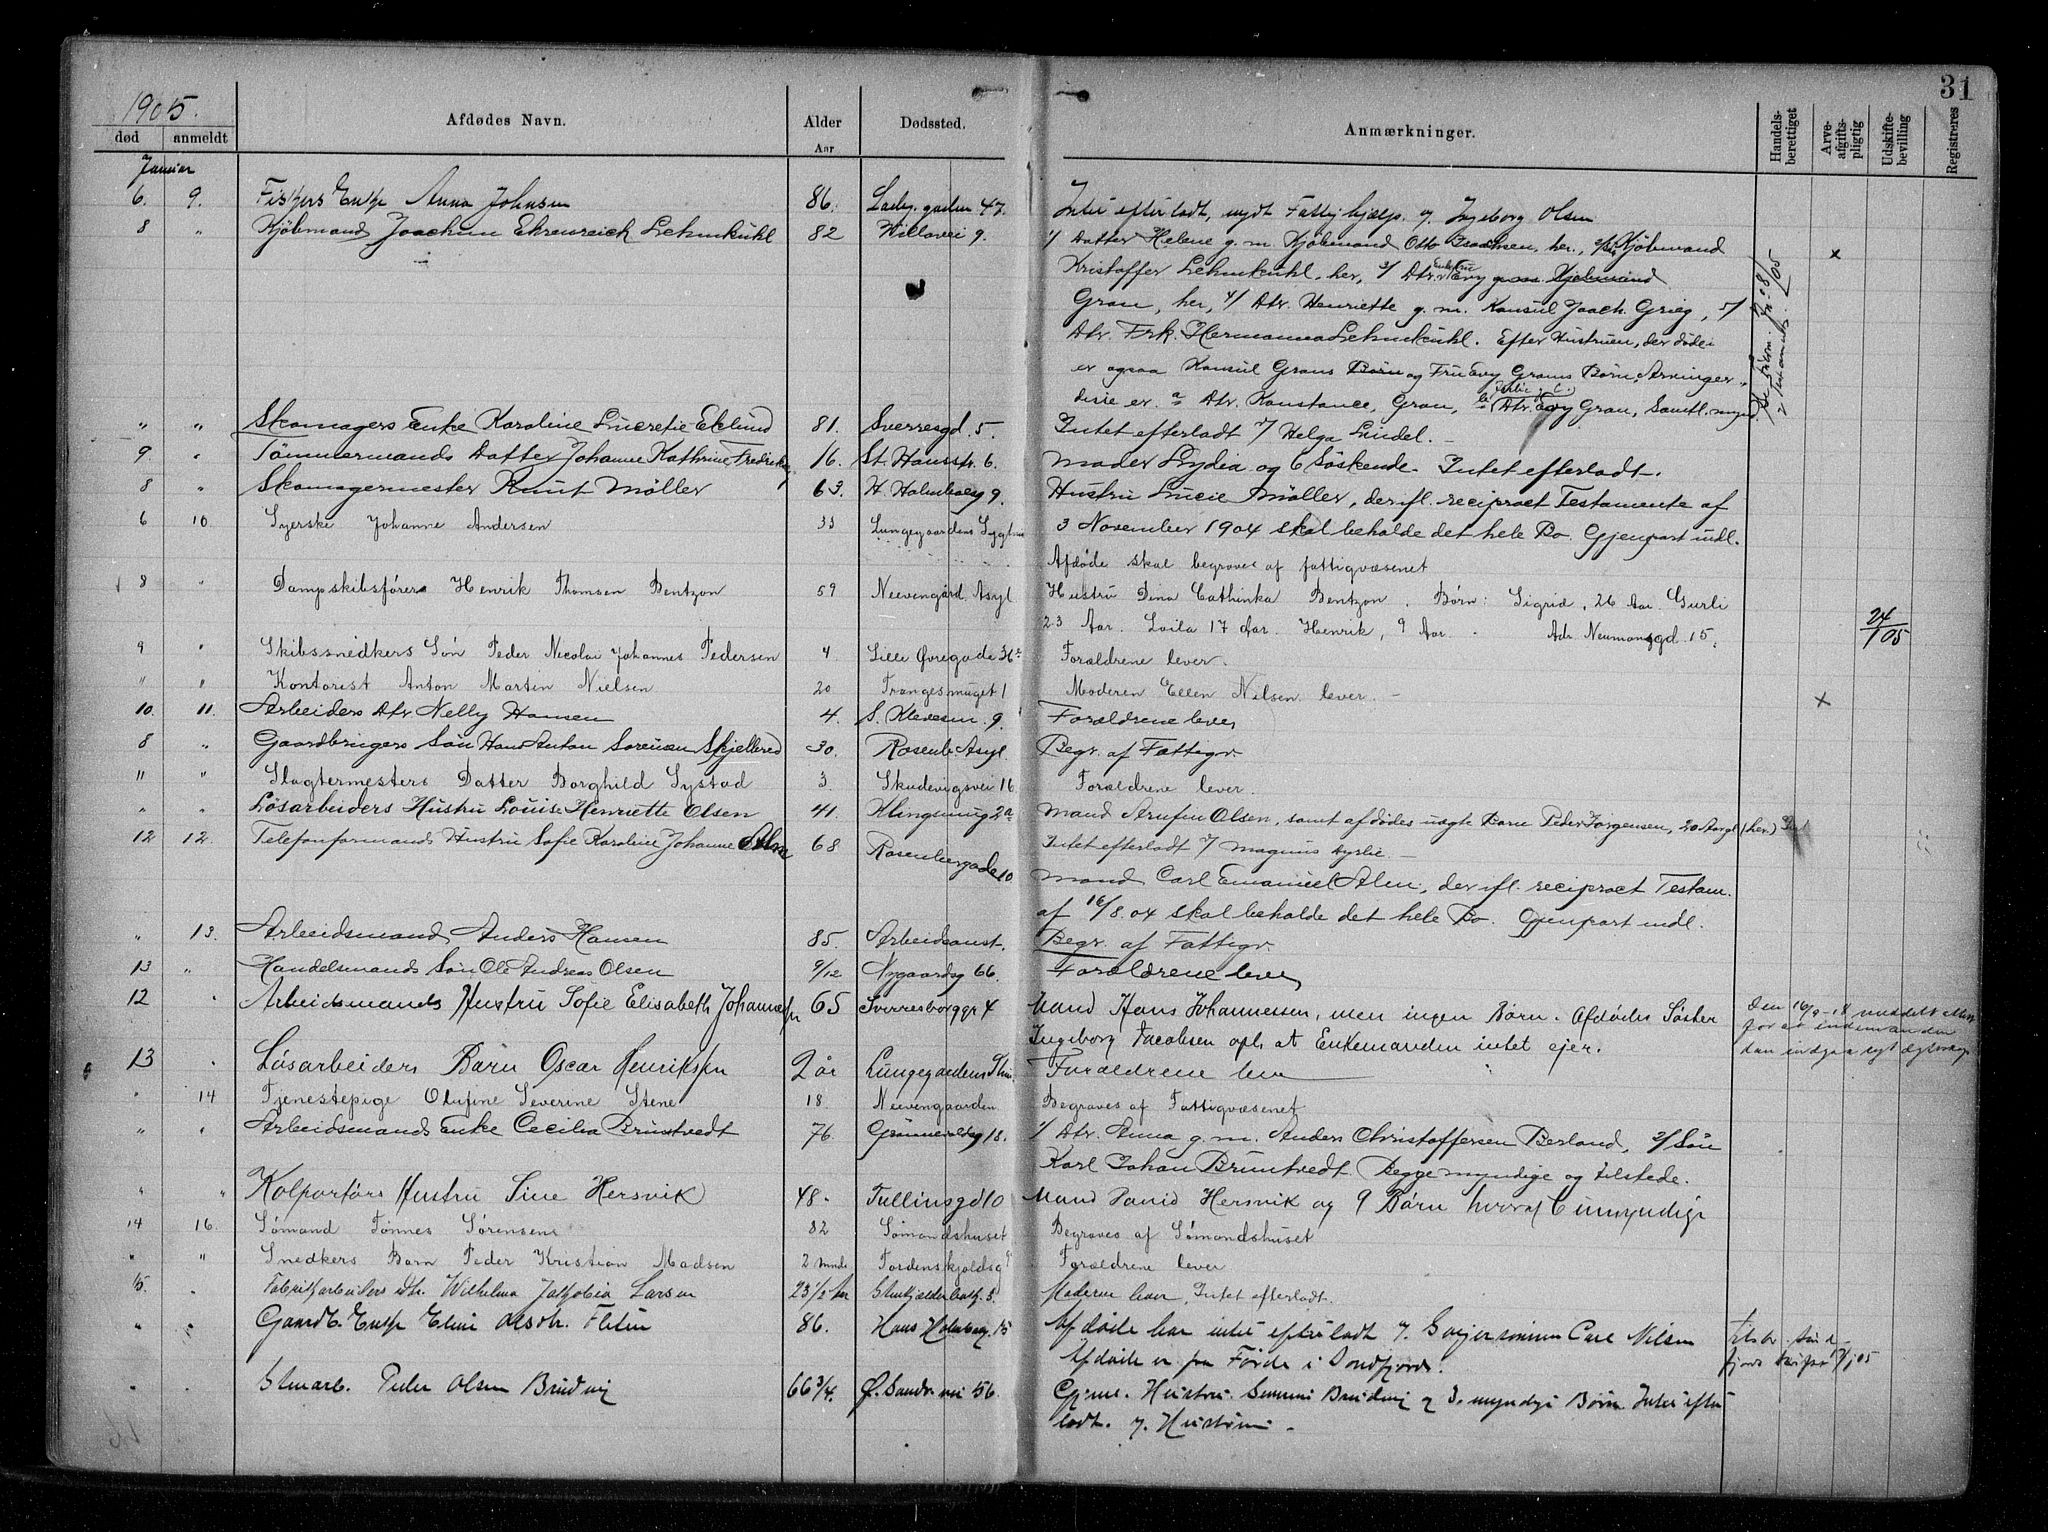 31
1905.
død anmeldt Afdødes Navn. Alder Aar Dødssted. Anmærkninger. Handels-berettiget Arve-afgifts-pligtig Udskifte-bevilling Registreres
Januar
6. 9. Fiskers Enke Anna Johnsen 86. Ladeg.gaden 47. Intet efterladt, nydt Fattighjælp. 7. Ingeborg Olsen
8 " Kjøbmand Joachim Ehrenreich Lehmkuhl 82 Hillevei 9. 1/ Datter Helene g. m. Kjøbmand Otto her, 2/ Kjøbmand
Kristoffer Lehmkuhl, her, 3/ Dtr. Enkefru Evy g. m. Kjøbmand
Gran, her, 4/ Dtr. Henriette g. m. Konsul Joach. Grieg, 5/
Dtr. Frk. Hermanna Lehmkuhl. Efter Hustruen, der døde
er ogsaa Konsul Grans Børn og Fru Evy Grans Børn Arvinger.
disse er. a Dtr. Konstance, Gran, b Dtr. Evy Gran, Samtl. mynd.
" " Skomagers Enke Karoline Lucretie Eklund 81. Sverresgd. 5. Intet efterladt 7/ Helga Lindel. -
9 " Tømmermands Datter Johanne Kathrine Fredriksen 16. St. Hansstr. 6. Moder Lydia og 6 Søskende. Intet efterladt.
8 " Skomagermester Knut Møller 63. H. Holmboesg 9. Hustru Lucie Møller, der ifl. reciproct Testamente af
3 November 1904 skal beholde det hele Bo. Gjenpart indl.
6 10 Syerske Johanne Andersen 33 Lungegaardens Sygehus Afdøde skal begraves af fattigvæsenet
8 " Dampskibsfører Henrik Thomsen Bentzon 59 Neevengård Asyl Hustru Dina Cathinka Bentzon. Børn: Sigrid, 26 Aar. Gurli
23 Aar. Laila 17 Aar. Henrik, 9 Aar. Adr. Neumansgd. 15. 24/1 05
9 " Skibssnedkers Søn Peder Nicolai Johannes Pedersen 4 Lille Øvregade 36 Forældrene lever.
" " Kontorist Anton Martin Nielsen 20 Trangesmuget 1 Moderen Ellen Nilsen lever. - x
10. 11. Arbeiders Dtr Nelly Hansen 4. S. Klevesm. 9. Forældrene lever
8 " Gaardbrugers Søn Hans Anton Sørensen Skjellerud 30. Rosenb. Asyl. Begr. af Fattigv.
" " Slagtermesters Datter Borghild Systad 3 Skudevigsvei 16 Forældrene lever.
" " Løsarbeiders Hustru Louise Henriette Olsen 41. Klingsmug 2a Mand Arnfin Olsen, samt afdødes uægte Barn Peder Jørgensen, 20 Aar gl (her.)
12 12. Telefonformands Hustru Sofie Karoline Johanne Alm 68 Rosenberggade 10 Intet efterladt 7/ Magnus
Mand Carl Emanuel Alm, der ifl. reciproct Testam.
af 16/8.04 skal beholde det hele Bo. Gjenpart indl.
" 13. Arbeidsmand Anders Hansen 85. Arbeidsanst. Begr. af Fattigv.
13 " Handelsmands Søn Ole Andreas Olsen 9/12 Nygaardsg 66. Forældrene lever
12 " Arbeidsmands Hustru Sofie Elisabeth Johannesen 65 Sverresborggt 4 Mand Hans Johannessen, men ingen Børn. Afdødes Søster
Ingeborg Jacobsen opl. at Enkemanden intet ejer.
Den 16/9-18 meddelt attest
for at indemanden
kan indgaa nyt ægteskap
13 " Løsarbeiders Barn Oscar Henriksen 2 år Lungegaardens Forældrene lever
" 14 Tjenestepige Olufine Severine Stene 18. Neevengaarden Begraves af Fattigvæsenet
" " Arbeidsmands Enke Cecilia Bruntvedt 76 Grønnevoldsg 18. 1/ Dtr. Anna g. m. Anders Christoffersen Berland, 2/ Søn
Karl Johan Bruntvedt. Begge myndige og tilstede.
" " Kolportørs Hustru Sine Hersvik 48. Tullinsgd 10 Mand David Hersvik og 9 Børn hvoraf 6 umyndige
14 16. Sømand Tønnes Sørensen 82 Sømandshuset Begraves af Sømandshuset
" " Snedkers Barn Peder Kristian Madsen 2 mnde Tordenskjoldsg 9 Forældrene lever
15 " Fabrikarbeiders dtr. Wilhelma Jakobia Larsen 23 1/2 Aar Stenkjælderbak. 3. Moderen lever, Intet efterladt.
" " Gaardb. Enke Eline Olsdtr. Fletin 86. Hans Holmboeg. 15 Afdøde har intet efterladt 7. Svigersønnen Carl Nilsen
Afdøde er fra Førde i Søndfjord.
" " Stenarb. Peder Olsen Brudvig 66 3/4. Ø. Sandv. vei 56. Gjenl. Hustru Brudvig og 3 myndige Børn. Intet efter
ladt. 7. Hustruen -